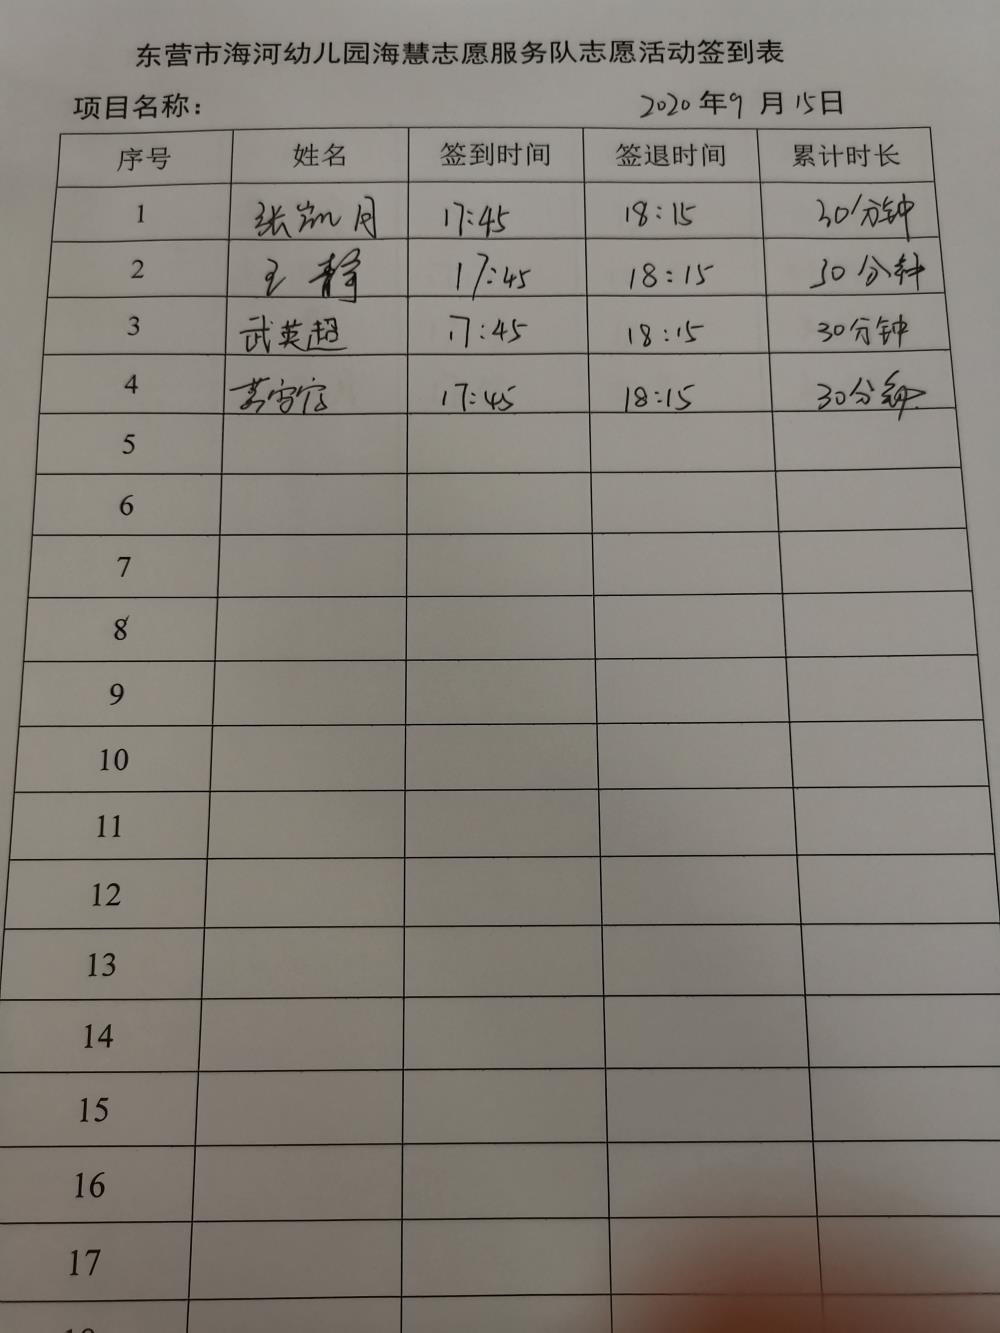 东营市海河幼儿园海慧志愿服务队志愿活动签到表
项目名称： 2020年9月15日
序号 姓名 签到时间 签退时间 累计时长
1 张凯月 17:45 18:15 30分钟
2 王静 17:45 18:15 30分钟
3 武英超 17:45 18:15 30分钟
4 17:45 18:15 30分钟
5
6
7
8
9
10
11
12
13
14
15
16
17